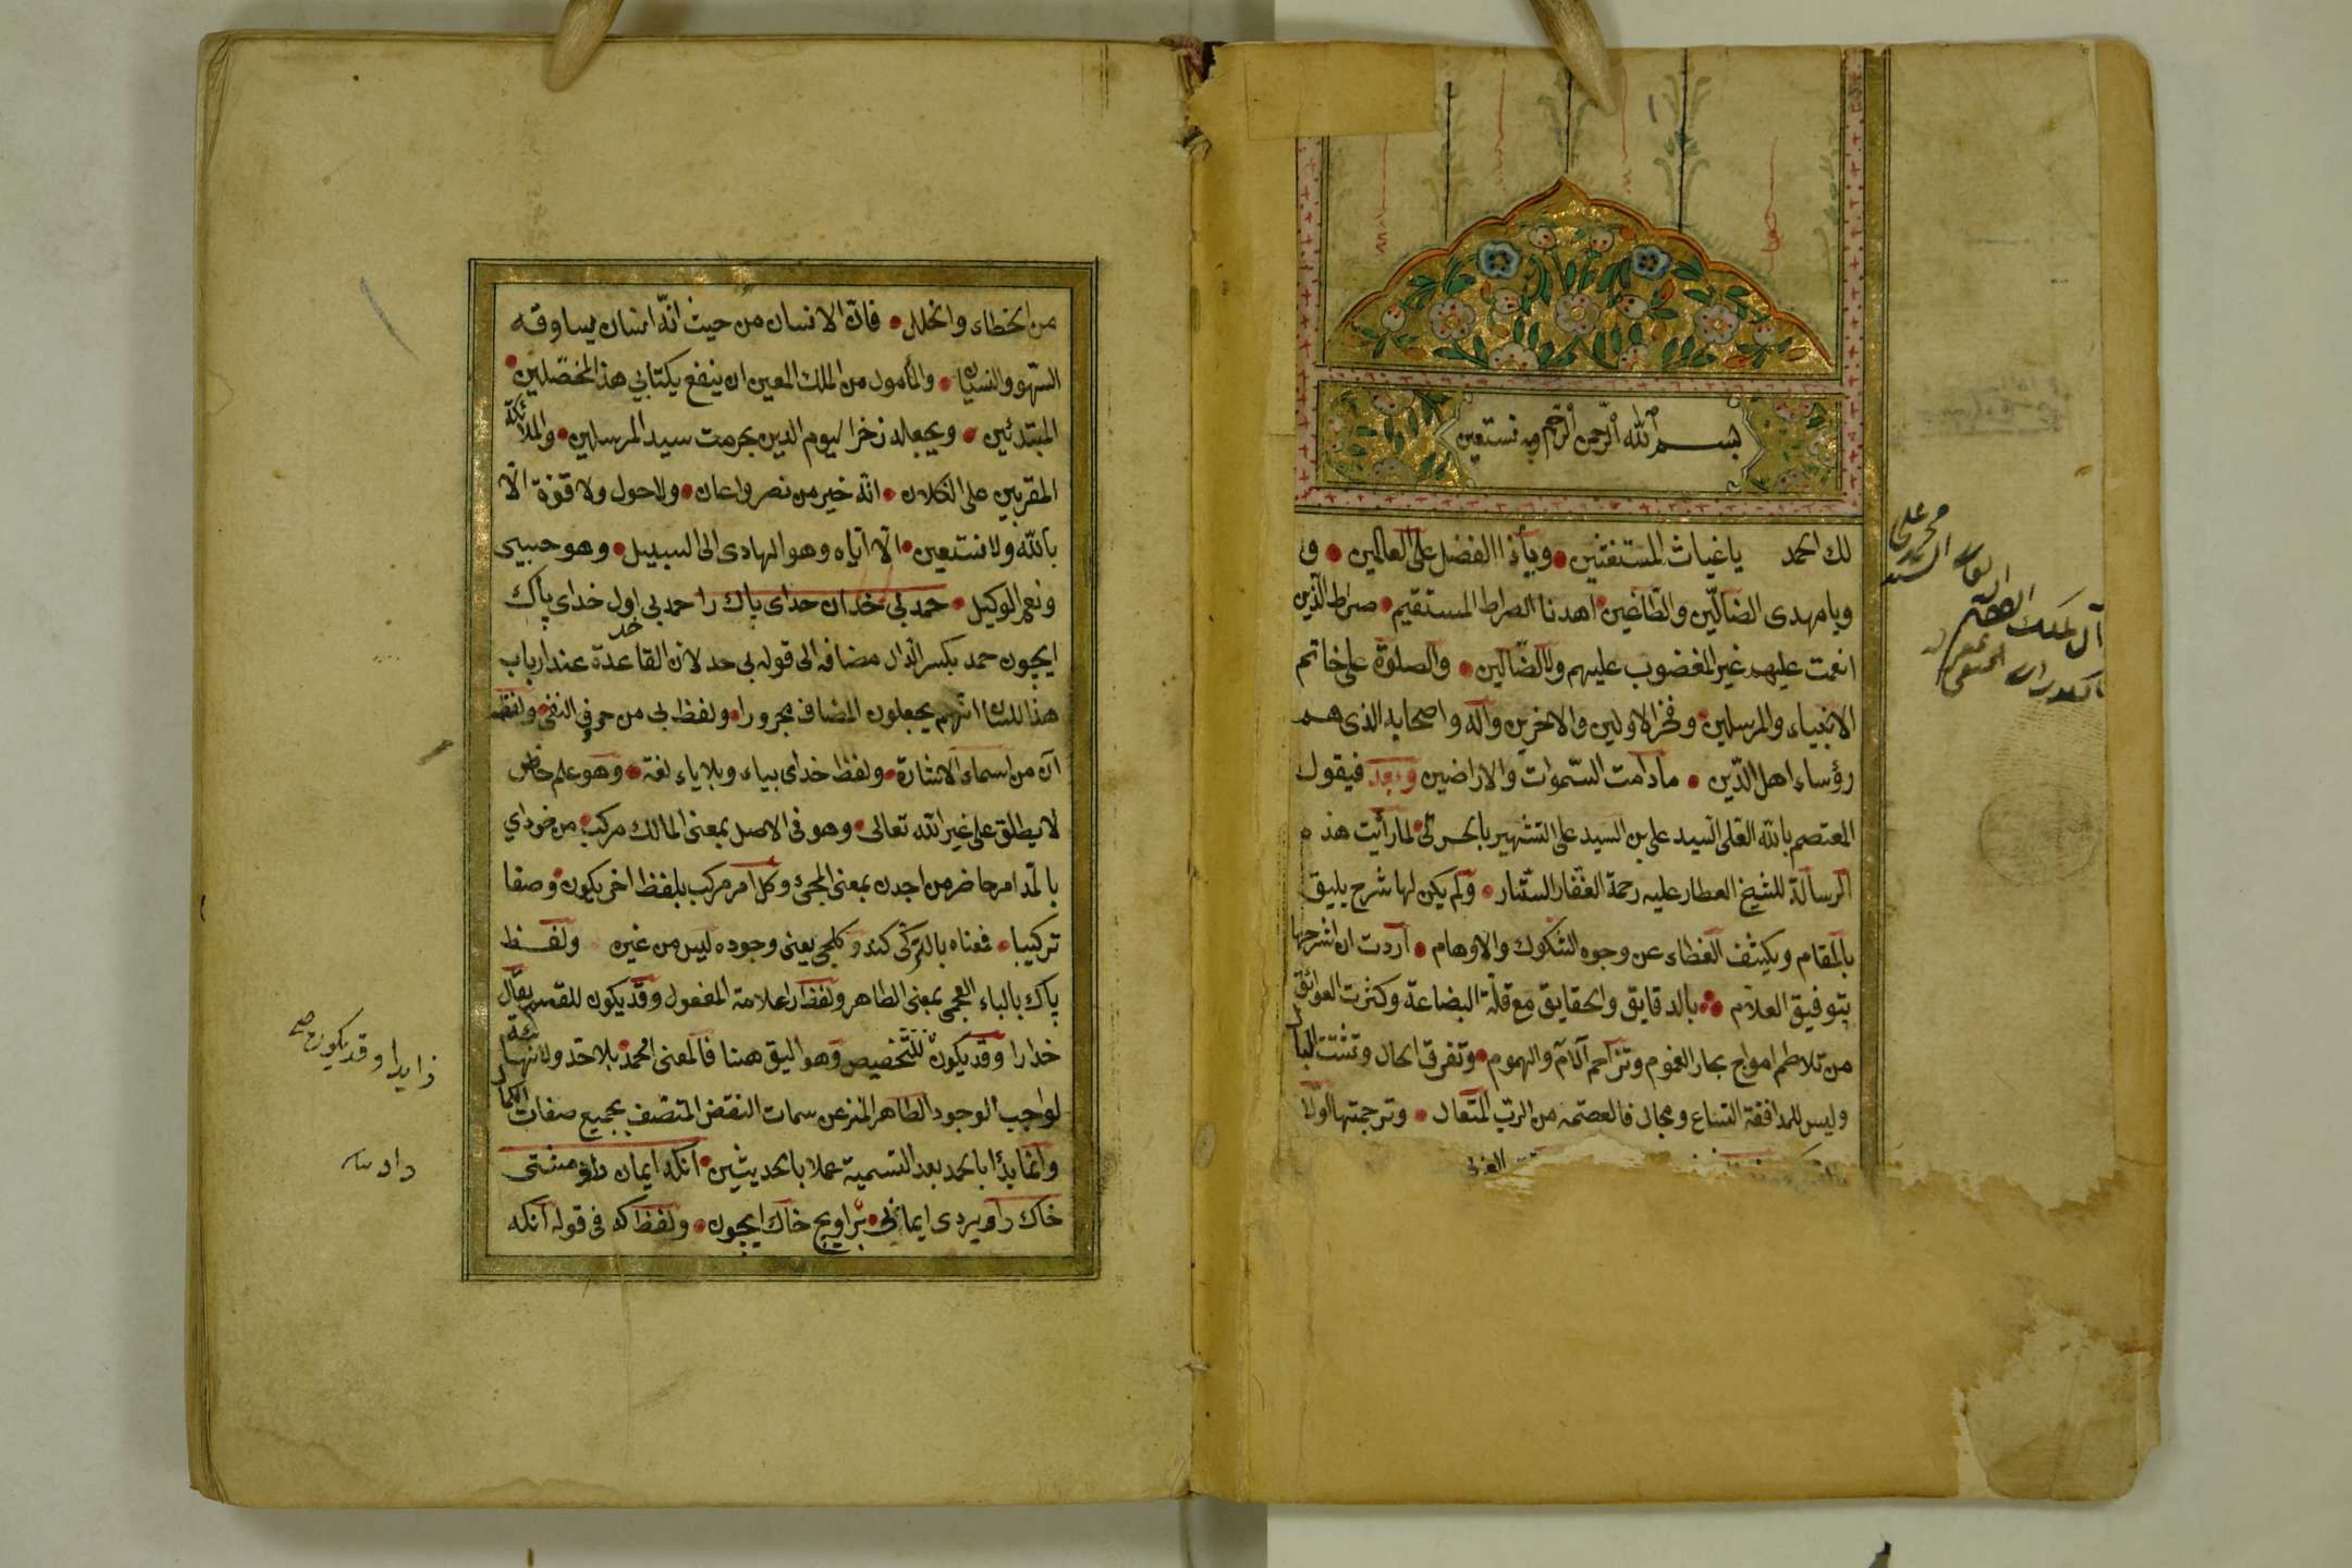 بسم الله الرحمن الرحيم وبه نستعين
لك الحمد يا غياث المستغثين وياذا الفضل على العالمين و
ويا مهدى الضالّين والطّاغين اهدنا الصراط المستقيم صراط الّذين
انعمت عليهم غير المغضوب عليهم ولا الضّالين والصلوة على خاتم
الانبياء والمرسلين وفخر الاولين والاخرين واله واصحابه الذى هم
رؤساء اهل الدّين مادامت السّموات والاراضين وبعد فيقول
المعتصم بالله العلى السيد على بن السيد على الشهير لما رأيت هذه
الرسالة للشيخ العطار عليه رحمة الغفار الستار ولم يكن لها شرح يليق
بالمقام ويكشف الغطاء عن وجوه الشكوك والاوهام اردت ان اشرحها
بتوفيق العلام بالدقايق والحقايق مع قلّة البضاعة وكثرت العوائق
من تلاطم امواج بحار الغموم وتزاحم آلام والهموم وتفرق الحال وتشتت البال
وليس للمدافقة اتساع ومجال فالعصمه من الربّ المتعال وترجمتها اولا
من الخطاء والخلل فانّ الانسان من حيث انّه انسان يساوقه
السّهو والنسيان والمأمول من الملك المعين ان ينفع بكتابي هذا المحصّلين
المبتدئين ويجعله زخرا ليوم الدين بحرمت سيد المرسلين والملائكة
المقربين على التكلان انّه خير من نصر واعان ولا حول ولا قوّة الّا
بالله ولا نستعين الّا ايّاه وهو الهادى الى السبيل وهو حسبى
ونعم الوكيل حمد بى حد آن خداى پاك را حمد بى حد اول خداى پاك
ايچون حمد بكسر الدّال مضافه الى قوله بى حد لان القاعدة عند ارباب
هذا اللسان انّهم يجعلون المضاف مجرورا ولفظ بى من حروف النفى ولفظ
آن من اسماء الاشارة ولفظ خداى بياء وبلا ياء لغة وهو علم خاص
لا يطلق على غير الله تعالى وهو فى الاصل بمعنى المالك مركب من خود آي
بالمدّ امر حاضر من اجدن بمعنى المجئ وكل امر مركب بلفظ اخر يكون وصفا
تركيبيا فمعناه بالتركى كندو كلجى يعنى وجوده ليس من غيره ولفظ
پاك بالباء العجمى بمعنى الطاهر ولفظ را علامة المفعول وقد يكون للقسم يقال
خدا را وقد يكون للتخصيص وهو اليق هنا فالمعنى الحمد بلا حد ولا نهاية
لواجب الوجود الطاهر المنزه عن سمات النقض المتصف بجميع صفات الكمال
وانما بدأ بالحمد بعد التسمية عملا بالحديثين آنكه ايمان داد مشتى
خاك را ويردى ايمانى براوج خاك ايچون ولفظ كه فى قوله آنكه
زايدا وقد يكون صح